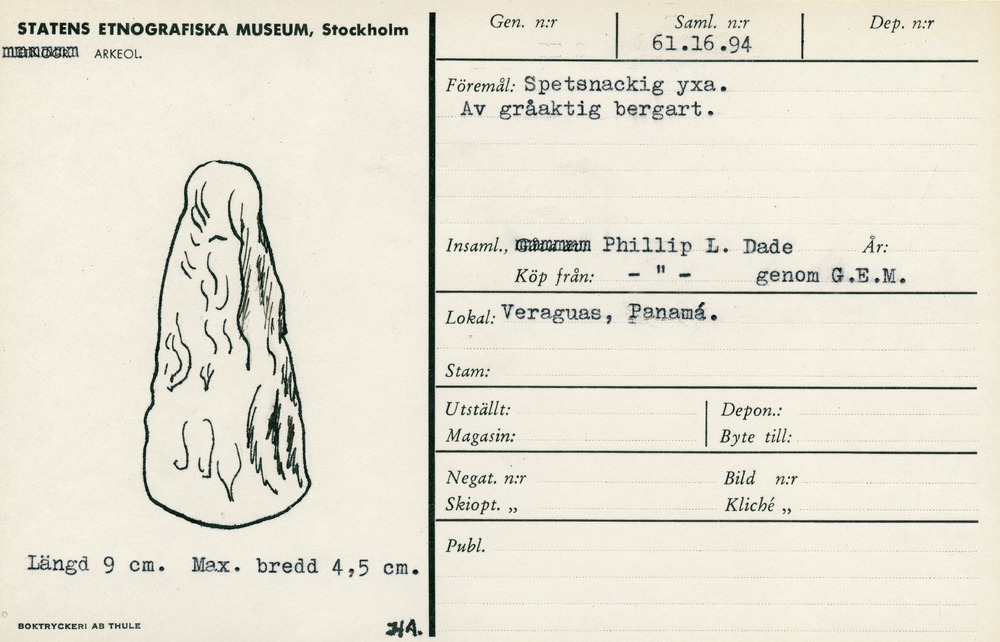 STATENS ETNOGRAFISKA MUSEUM, Stockholm
ARKEOL.
Längd 9 cm. Max. bredd 4,5 cm.
BOKTRYCKERI AB THULE
HA.
Gen. n:r
Saml. n:r
61.16.94
Dep. n:r
Föremål: Spetsnackig yxa.
Av gråaktig bergart.
Insaml., Phillip L. Dade År:
Köp från: - " - genom G.E.M.
Lokal: Veraguas, Panamá.
Stam:
Utställt: Depon.:
Magasin: Byte till:
Negat. n:r Bild n:r
Skiopt. „ Kliché „
Publ.